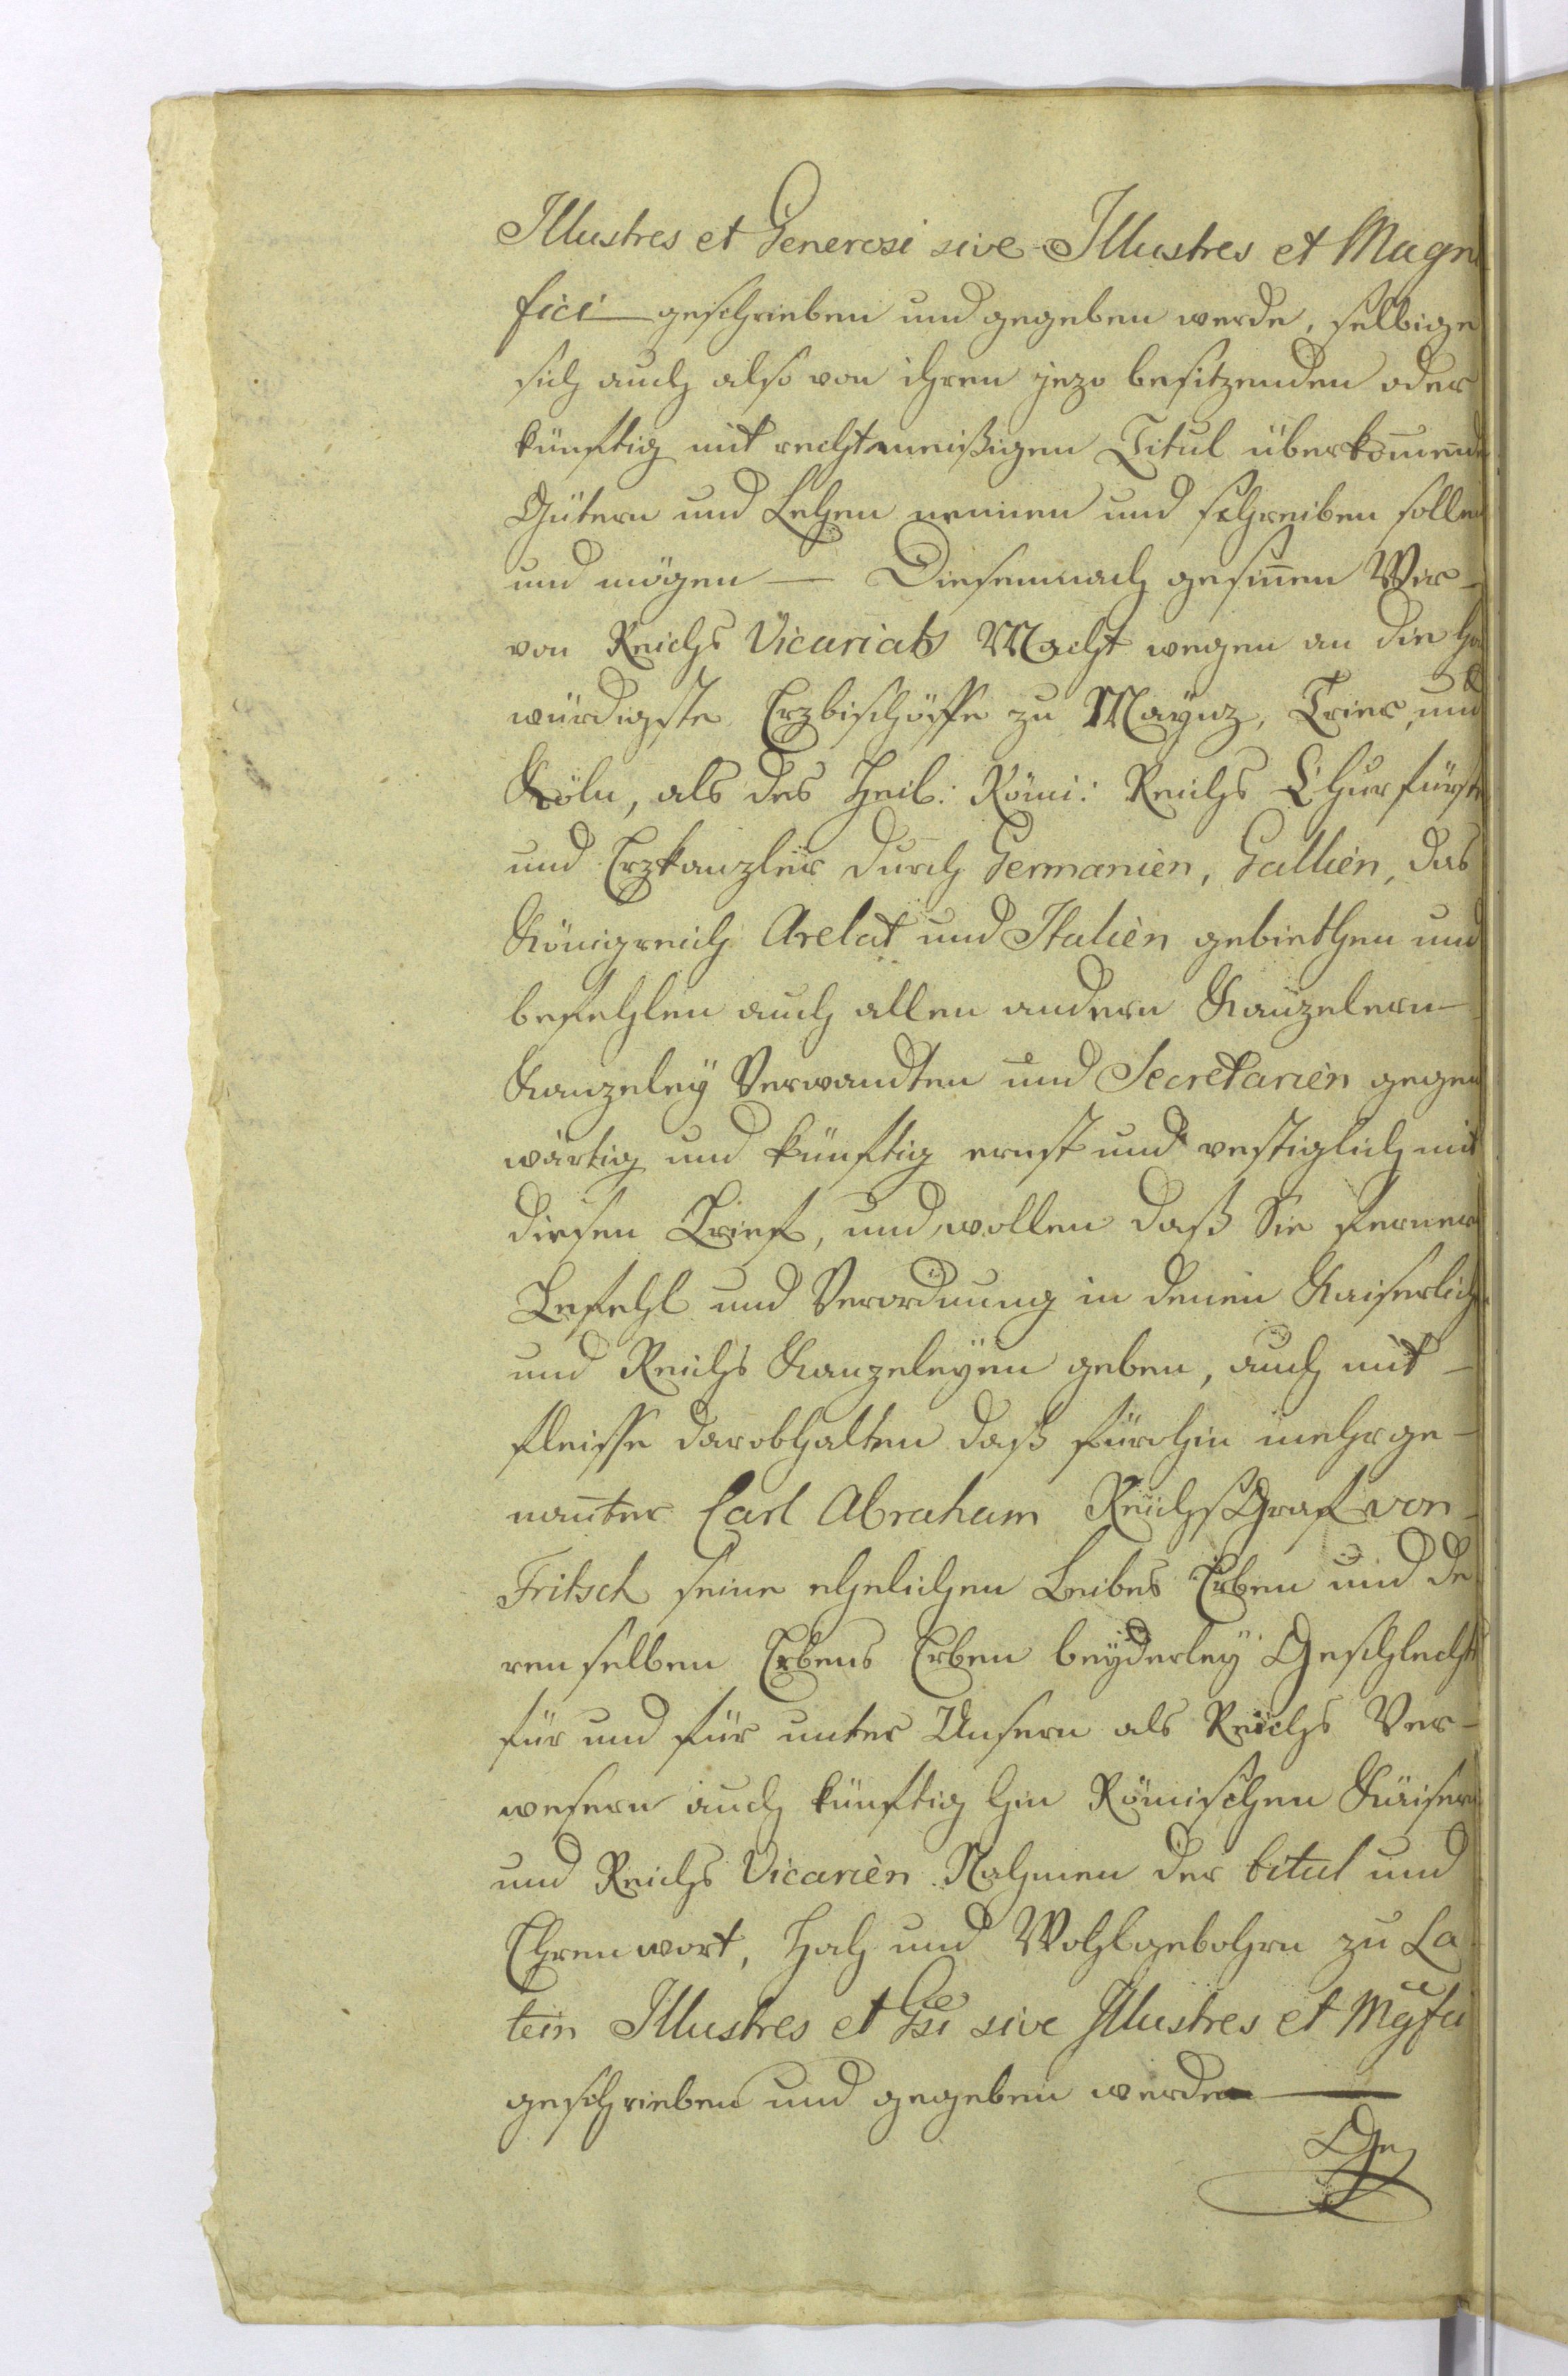 Illustres et Generosi sive Illustres et Magni
fici geschrieben und gegeben werde, selbige
sich auch also von ihren jezo besitzenden oder
künftig mit rechtmeißigen Titul überkom̄ende
Gütern und Lehen nennen und schreiben sollen
und mögen — Diesemnach gesin̄en Wir -
von Reichs Vicariats Macht wegen an die Ho
würdigste Erzbischöffe zu Maÿnz, Trier, und
Köln, als des Heil: Römi: Reichs Churfürste
und Erzkanzler durch Germanien, Gallien, das
Königreich Arelat und Italien gebiethen und
befehlen auch allen andern Kanzelern -
Kanzeleÿ Verwandten und Secretarien gegen
wärtig und künftig ernst und vestiglich mit
diesen Brief, und wollen daß Sie ferner
Befehl und Verordnung in denen Kaiserlich
und Reichs Kanzeleÿen geben, auch mit -
fleisse darobhalten daß fürohin mehrge-
nan̄ter Carl Abraham Reichs Graf von -
Fritsch seine ehelichen Leibes Erben und de
renselben Erbens Erben beÿderleÿ Geschlechts
für und für unter Unsern als Reichs Ver-
wesern auch künftig hin Römischen Kaisern
und Reichs Vicarien Nahmen der titul und
Ehrenwort, Hoh und Wohlgebohrn zu La
tein Illustres et Gsi sive Illustres et Mgfci
geschrieben und gegeben werde —
Ge